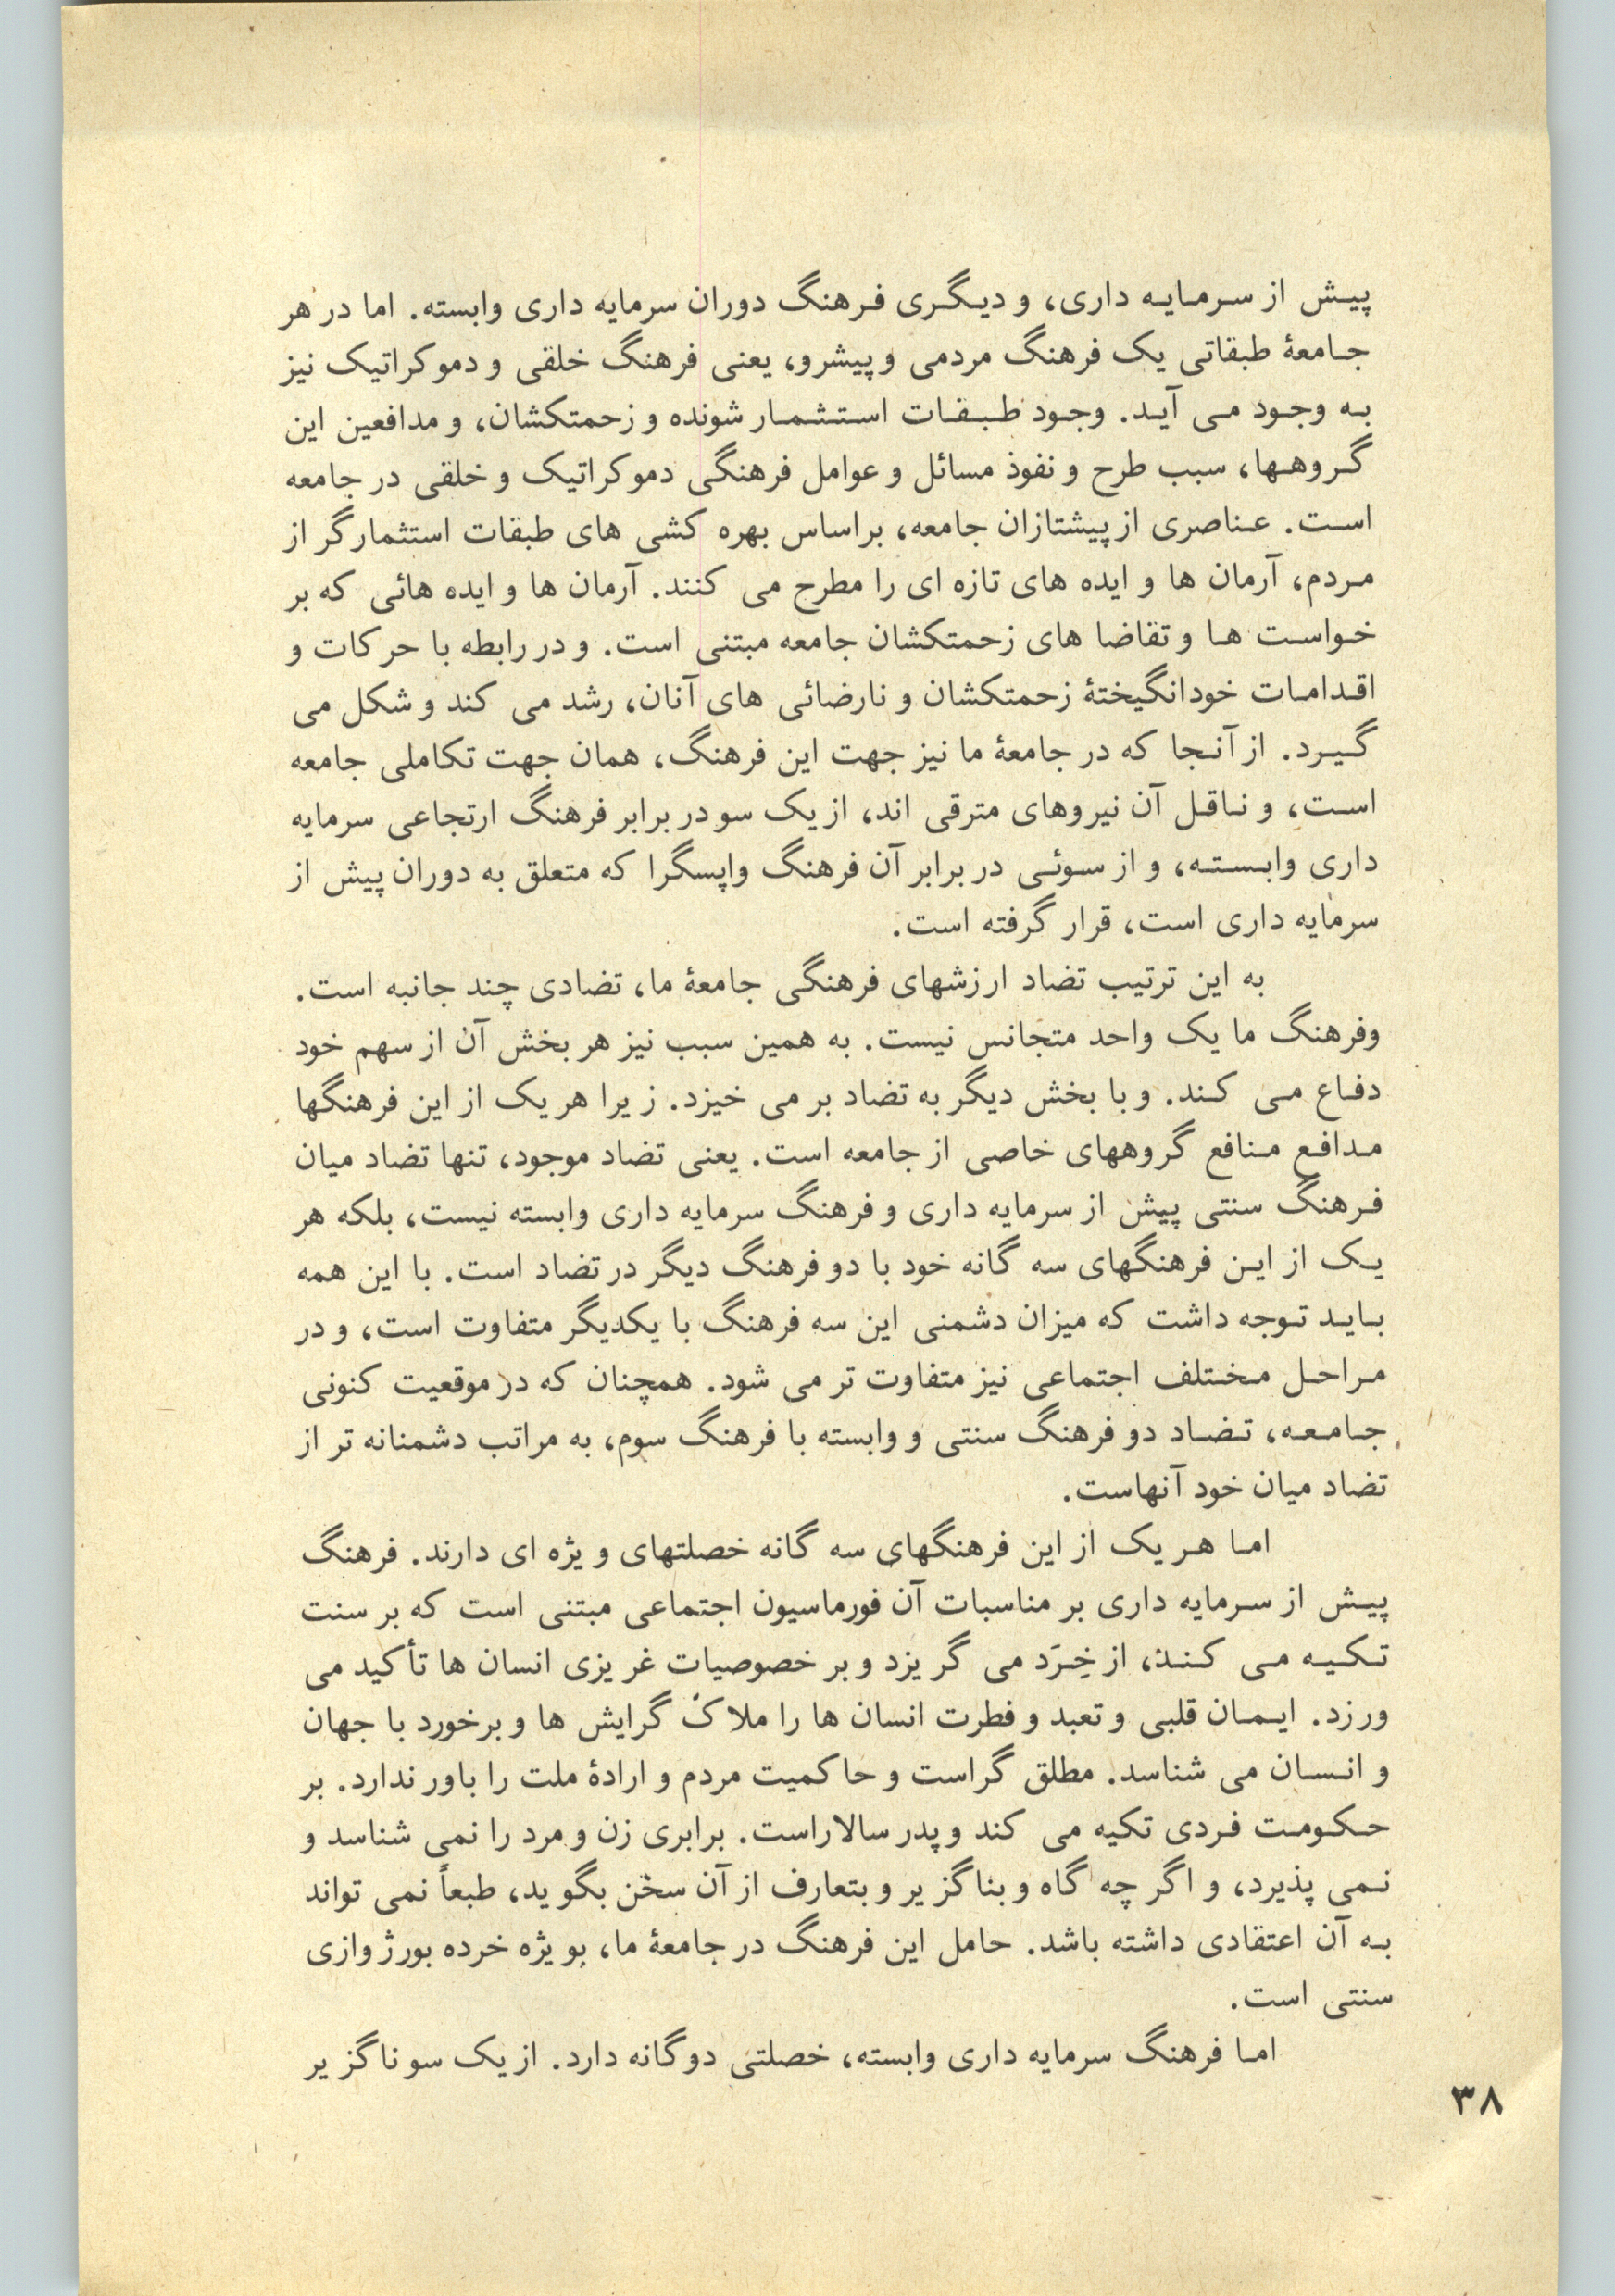 پیش از سرمایه داری، و دیگری فرهنگ دوران سرمایه داری وابسته. اما در هر
جامعهٔ طبقاتی یک فرهنگ مردمی و پیشرو، یعنی فرهنگ خلقی و دموکراتیک نیز
به وجود می آید. وجود طبقات استثمار شونده و زحمتکشان، و مدافعین این
گروهها، سبب طرح و نفوذ مسائل و عوامل فرهنگی دموکراتیک و خلقی در جامعه
است. عناصری از پیشتازان جامعه، براساس بهره کشی های طبقات استثمارگر از
مردم، آرمان ها و ایده های تازه ای را مطرح می کنند. آرمان ها و ایده هائی که بر
خواست ها و تقاضا های زحمتکشان جامعه مبتنی است. و در رابطه با حرکات و
اقدامات خودانگیختهٔ زحمتکشان و نارضائی های آنان، رشد می کند و شکل می
گیرد. از آنجا که در جامعهٔ ما نیز جهت این فرهنگ، همان جهت تکاملی جامعه
است، و ناقل آن نیروهای مترقی اند، از یک سو در برابر فرهنگ ارتجاعی سرمایه
داری وابسته، و از سوئی در برابر آن فرهنگ واپسگرا که متعلق به دوران پیش از
سرمایه داری است، قرار گرفته است.
به این ترتیب تضاد ارزشهای فرهنگی جامعهٔ ما، تضادی چند جانبه است.
وفرهنگ ما یک واحد متجانس نیست. به همین سبب نیز هر بخش آن از سهم خود
دفاع می کند. و با بخش دیگر به تضاد بر می خیزد. زیرا هر یک از این فرهنگها
مدافع منافع گروههای خاصی از جامعه است. یعنی تضاد موجود، تنها تضاد میان
فرهنگ سنتی پیش از سرمایه داری و فرهنگ سرمایه داری وابسته نیست، بلکه هر
یک از این فرهنگهای سه گانه خود با دو فرهنگ دیگر در تضاد است. با این همه
باید توجه داشت که میزان دشمنی این سه فرهنگ با یکدیگر متفاوت است، و در
مراحل مختلف اجتماعی نیز متفاوت تر می شود. همچنان که در موقعیت کنونی
جامعه، تضاد دو فرهنگ سنتی و وابسته با فرهنگ سوم، به مراتب دشمنانه تر از
تضاد میان خود آنهاست.
اما هر یک از این فرهنگهای سه گانه خصلتهای ویژه ای دارند. فرهنگ
پیش از سرمایه داری بر مناسبات آن فورماسیون اجتماعی مبتنی است که بر سنت
تکیه می کند، از خِرَد می گریزد و بر خصوصیات غریزی انسان ها تأکید می
ورزد. ایمان قلبی و تعبد و فطرت انسان ها را ملاک گرایش ها و برخورد با جهان
و انسان می شناسد. مطلق گراست و حاکمیت مردم و ارادهٔ ملت را باور ندارد. بر
حکومت فردی تکیه می کند و پدر سالاراست. برابری زن و مرد را نمی شناسد و
نمی پذیرد، و اگر چه گاه و بناگزیر و بتعارف از آن سخن بگوید، طبعاً نمی تواند
به آن اعتقادی داشته باشد. حامل این فرهنگ در جامعهٔ ما، بویژه خرده بورژوازی
سنتی است.
اما فرهنگ سرمایه داری وابسته، خصلتی دوگانه دارد. از یک سو ناگزیر
۳۸